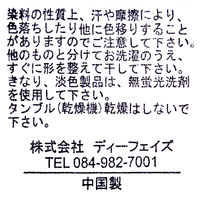 染料の性質上、汗や摩擦により、
色落ちしたり他に色移りすること
がありますのでご注意して下さい。
他のものと分けてお洗濯のうえ、
すぐに形を整えて干して下さい。
きなり、淡色製品は、無蛍光洗剤
を使用して下さい。
タンブル(乾燥機)乾燥はしないで
下さい。
株式会社 ディーフェイズ
TEL 084-982-7001
中国製